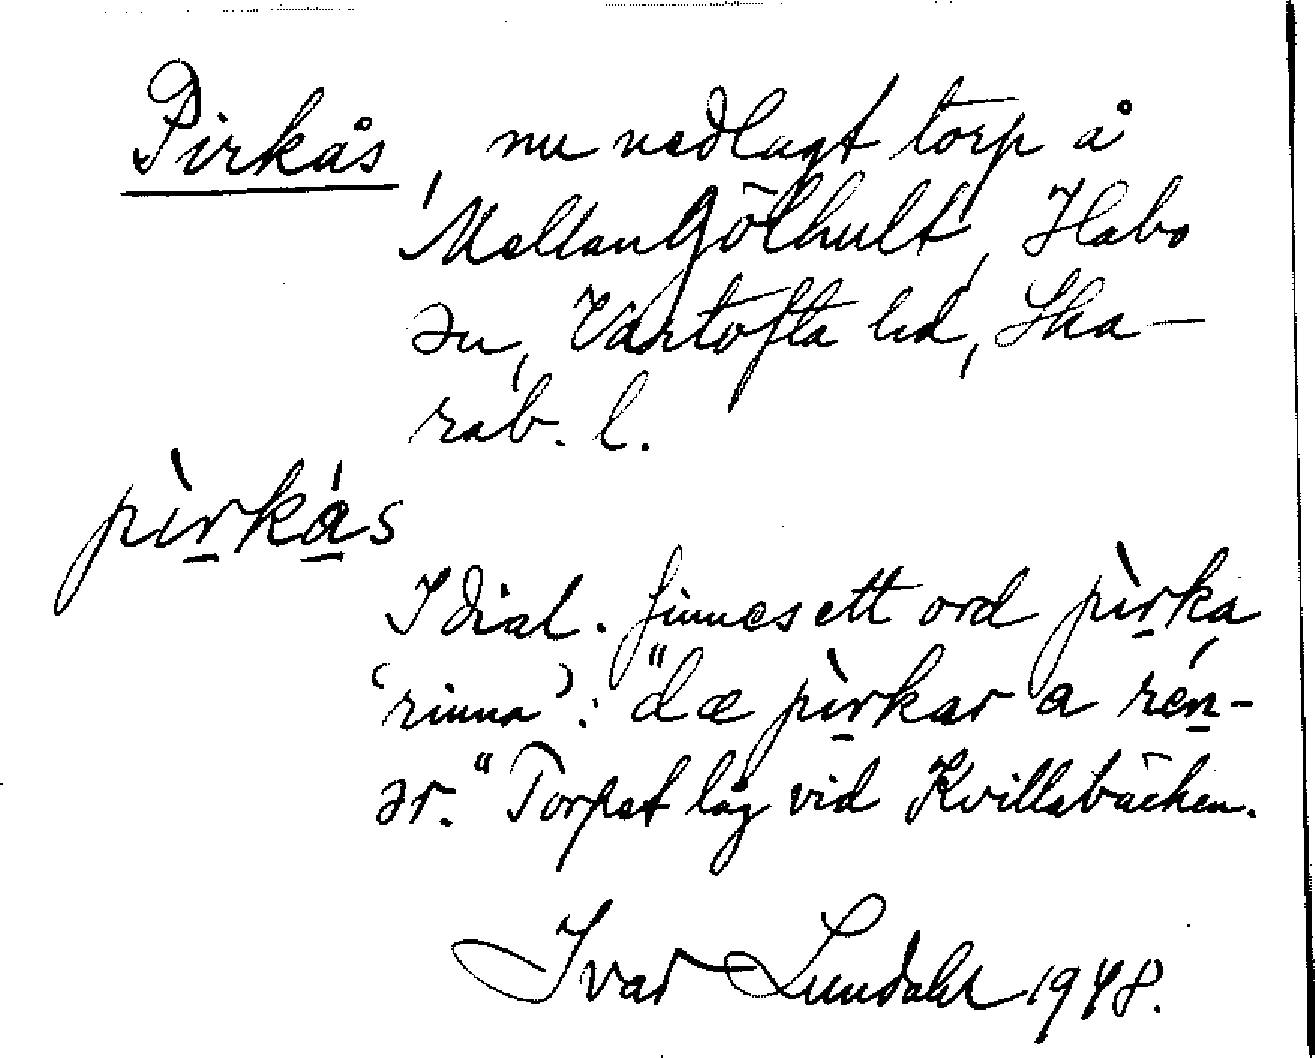 Pirkås, nu nedlagt torp å
Mellangölhult, Habo
sn, Vartofta hd, Ska-
rab. l.
pìrkás
I dial. finnes ett ord pìrka
'rinna': "dæ pìrkar a rén-
ər." Torpet låg vid Kvillabäcken.
Ivar Lundahl 1948.